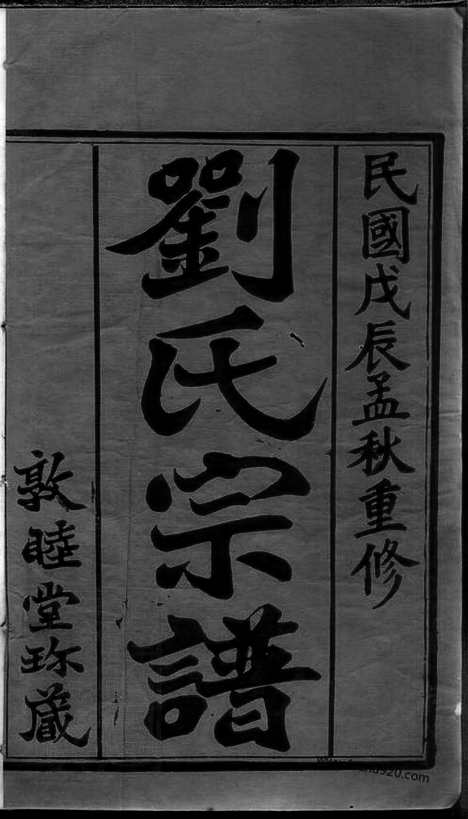 民國戊辰孟秋重修
劉氏宗譜
敦睦堂珎藏